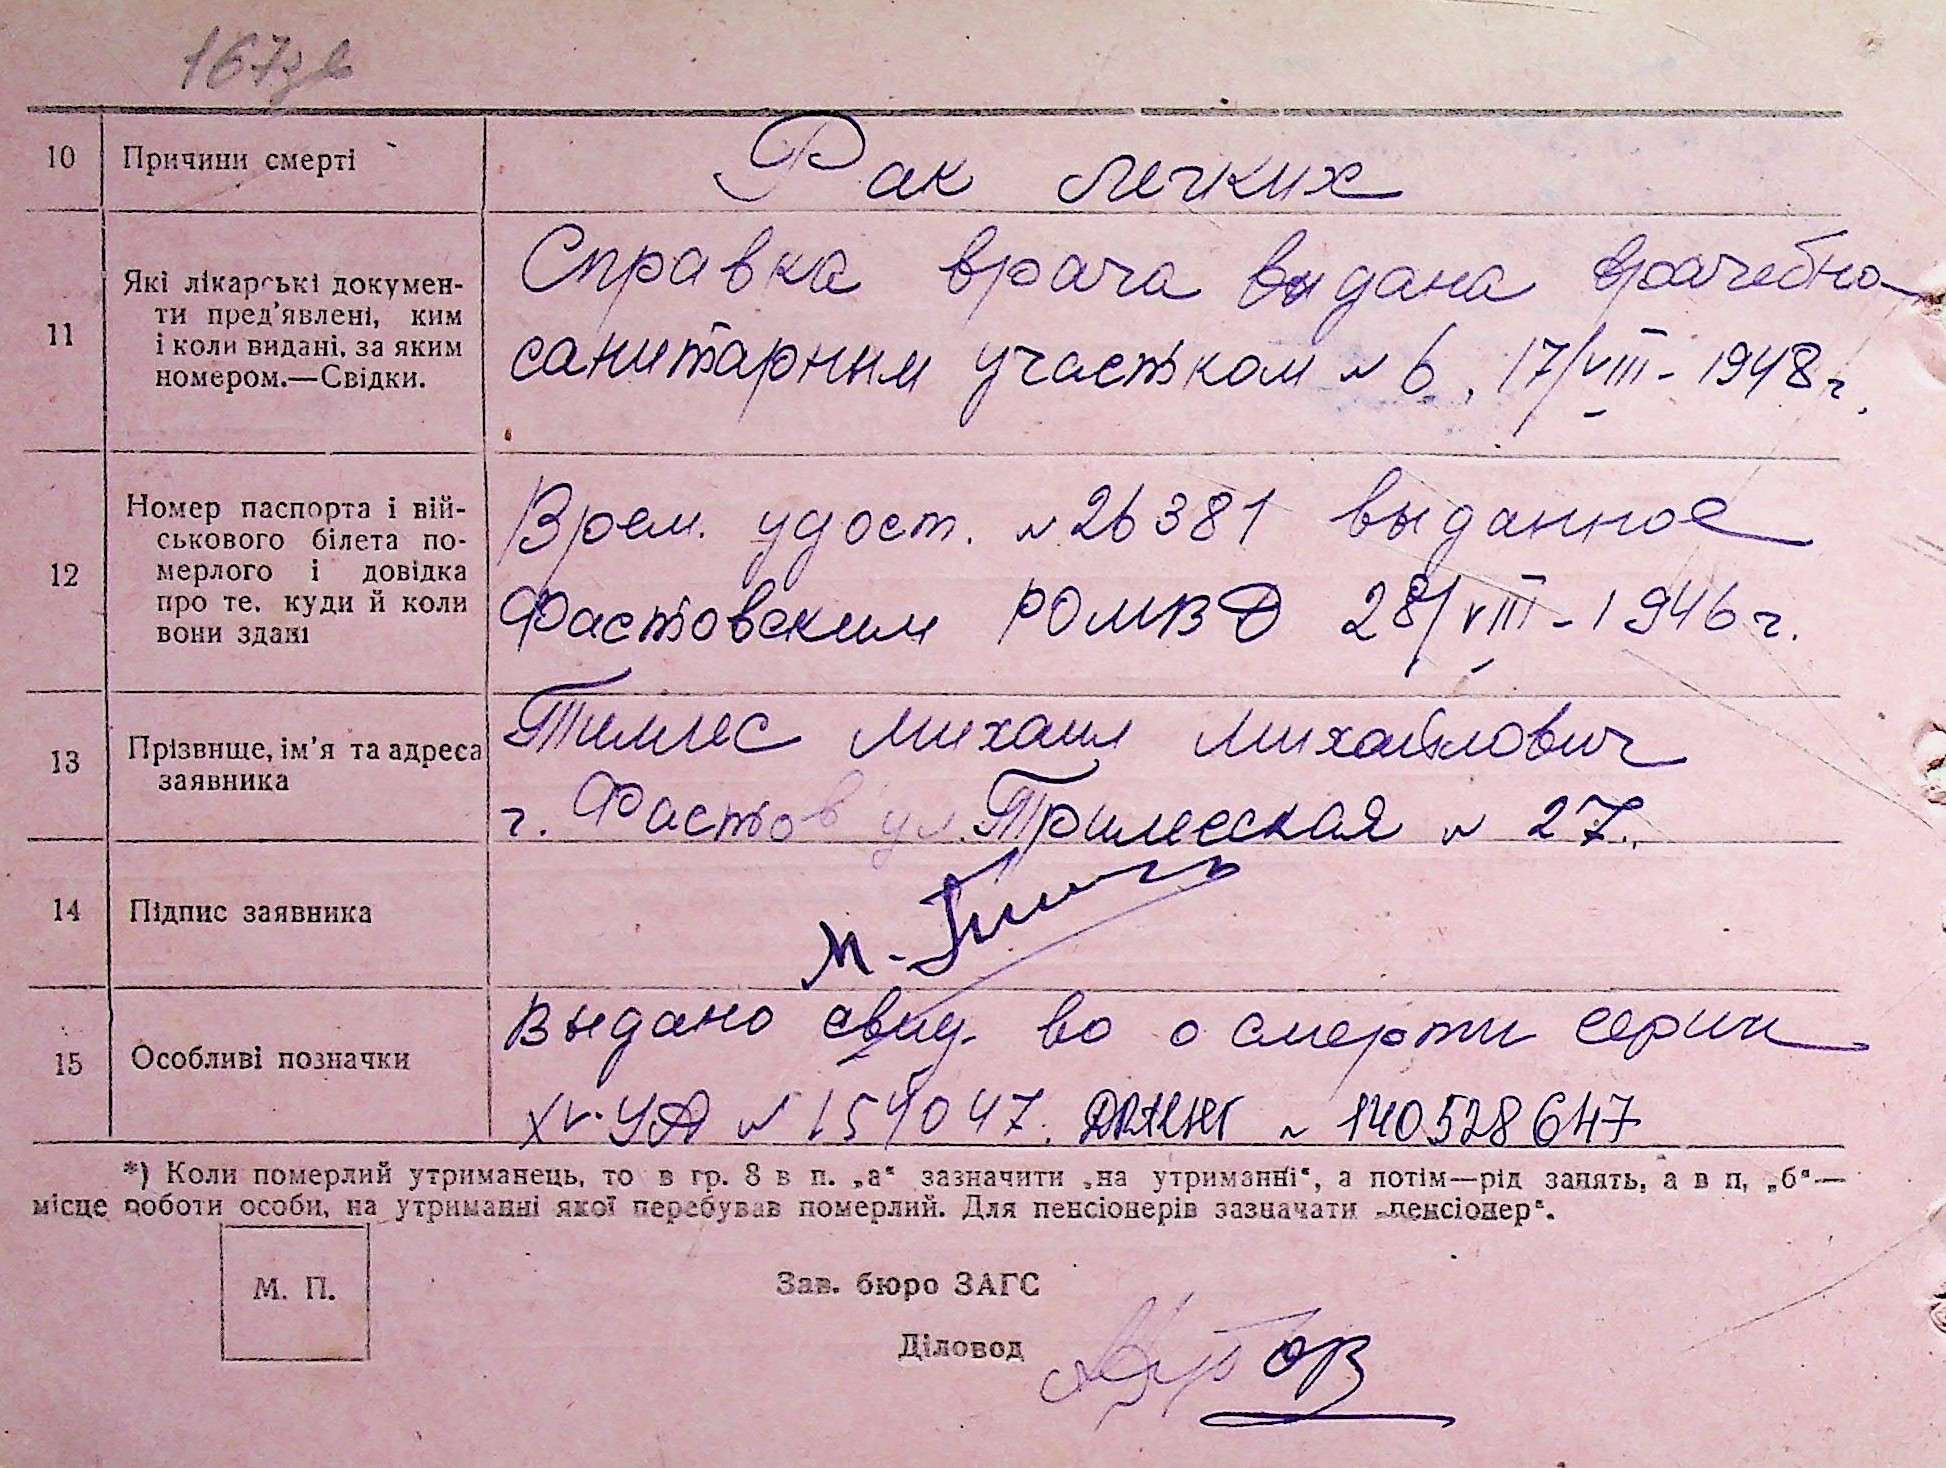 167зв
10 Причини смерті Рак легких
11 Які лікарські докумен-
ти пред'явлені, ким
і коли видані, за яким
номером.—Свідки.
Справка врача выдана врачебно-
санитарным участком N 6, 17/VIII-1948 г.
12 Номер паспорта і вій-
ськового білета по-
мерлого і довідка
про те, куди й коли
вони здані
Врем. удост. N 26381 выданное
Фастовским РОМВД 28/VIII-1946 г.
13 Прізвище, ім'я та адреса
заявника
Михаил Михайлович
г. Фастов ул. Трилесская N 27.
14 Підпис заявника
15 Особливі позначки
Выдано свид-во о смерти серии
XV-УА N 154047. ~ 140528647
*) Коли померлий утриманець, то в гр. 8 в п. „а“ зазначити „на утриманні“, а потім—рід занять, а в п. „б“—
місце роботи особи, на утриманні якої перебував померлий. Для пенсіонерів зазначати „пенсіонер“.
М. П.
Зав. бюро ЗАГС
Діловод